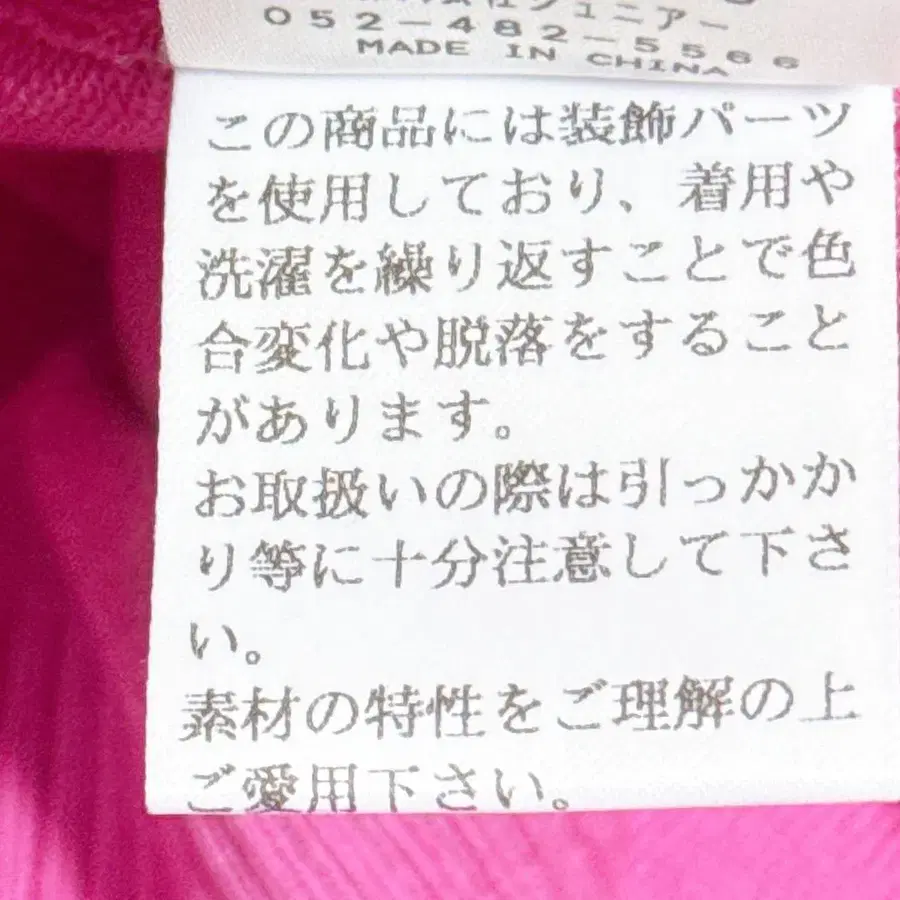 ジュニアー
052-482-5566
MADE IN CHINA
この商品には装飾パーツ
を使用しており、着用や
洗濯を繰り返すことで色
合変化や脱落をすること
があります。
お取扱いの際は引っかか
り等に十分注意して下さ
い。
素材の特性をご理解の上
ご愛用下さい。